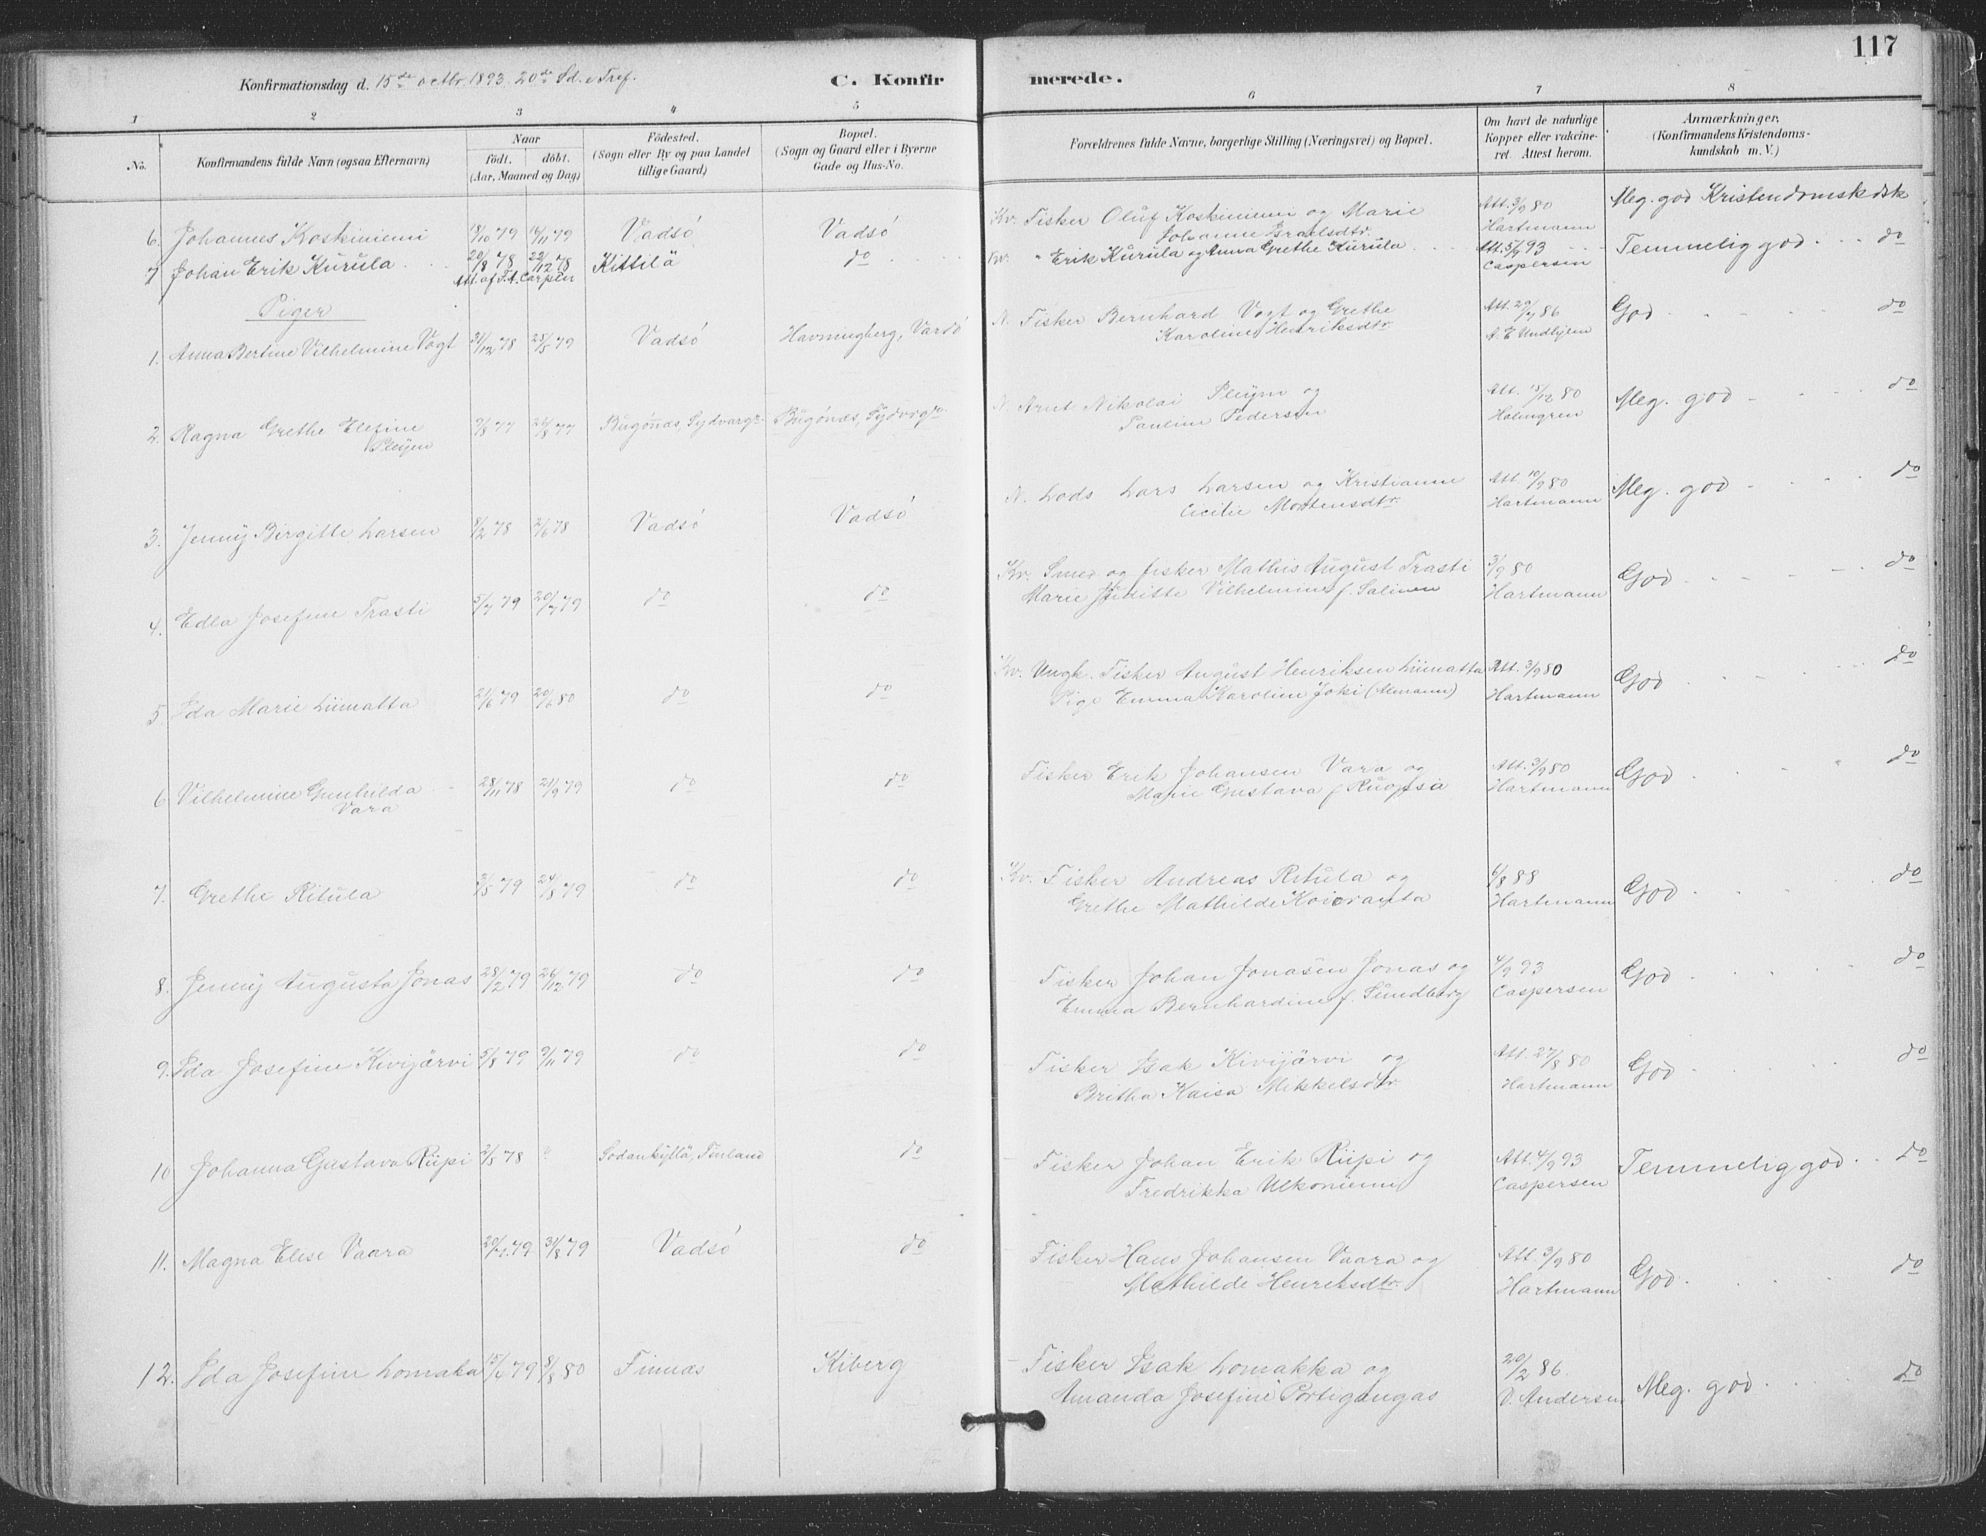 117
Konfirmationsdag d. 15de octbr. 1893. 20de Sd. e. Tref.
C. Konfirmerede.
1 2 3 4 5 6 7 8
No.
Konfirmandens fulde Navn (ogsaa Efternavn)
Naar
födt. döbt.
(Aar, Maaned og Dag)
Födested.
(Sogn eller By og paa Landet
tillige Gaard)
Bopæl.
(Sogn og Gaard eller i Byerne
Gade og Hus-No.
Forældrenes fulde Navne, borgerlige Stilling (Næringsvei) og Bopæl.
Om havt de naturlige
Kopper eller vakcine-
ret. Attest herom.
Anmærkninger.
(Konfirmandens Kristendoms-
kundskab m. V.)
6. Johannes Koskiniemi 19/10 79 16/11 79 Vadsö Vadsö Kv. Fisker Oluf Koskiniemi og Marie Att. 3/9 80 Meg. god Kristendomskdsk
Johanne Israelsdtr. Hartmann
7 Johan Erik Kurula 20/8 78 22/12 78 Kittilä do Kv. " Erik Kurula og Anna Grethe Kurula Att. 5/9 93 Temmelig god do
Att. af F. A. Carpen Caspersen
Piger
1. Anna Bertine Vilhelmine Vogt 31/12 78 25/5 79 Vadsö Havningberg, Vardö N. Fisker Bernhard Vogt og Grethe Att. 29/7 86 God do
Karoline Henriksdtr A. E. Undhjem
2. Ragna Grethe Elefine 9/8 77 26/8 77 Bugönæs, Sydvargr. Bugönæs, Sydvgr. N. Arnt Nikolai Pleym og Att. 15/12 80 Meg. god do
Pleym Pauline Pedersen Holmgren
3. Jenny Birgitte Larsen 8/2 78 2/6 78 Vadsö Vadsö N. Lods Lars Larsen og Kristianne Att. 10/9 80 Meg. god do
Cicilie Mortensdtr. Hartmann
4. Edla Josefine Trasti 5/7 79 20/7 79 do do Kv. Smed og fisker Mathis August Trasti 3/9 80 God do
Marie Juditte Vilhelmine f. Salinen Hartmann
5 Ida Marie Liimatta 21/6 79 20/6 80 do do Kv. Ungk. Fisker August Henriksen Liimatta Att. 3/9 80 God do
Pige Emma Karoline Joki (Alemann) Hartmann
6 Vilhelmine Gunhilda 28/11 78 21/9 79 do do Fisker Erik Johansen Vara og Att. 3/9 80 God do
Vara Marie Gustava f. Ruopsa Hartmann
7. Grethe Ritula 3/5 79 24/8 79 do do Kv. Fisker Andreas Ritula og 6/8 88 God do
Grethe Mathilde Koivranta Hartmann
8. Jenny Augusta Jonas 28/2 79 26/12 79 do do Fisker Johan Jonasen Jonas og 4/9 93 God do
Emma Bernhardine f. Sundberg Caspersen
9. Ida Josefine Kivijärvi 5/8 79 9/11 79 do do Fisker Isak Kivijärvi og Att. 27/8 80 God do
Britha Kaisa Mikkelsdtr Hartmann
10 Johanna Gustava Riipi 3/8 78 ? Sodankyllä, Finland do Fisker Johan Erik Riipi og Att. 4/9 93 Temmelig god do
Fredrikka Ulkoniemi Caspersen
11. Magna Elise Vaara 20/7. 79 31/8 79 Vadsö do Fisker Hans Johansen Vaara og Att. 3/9 80 God do
Mathilde Henriksdtr. Hartmann
12. Ida Josefine Lomaka 15/6 79 8/8 80 Finnæs Kiberg Fisker Isak Lomakka og 20/2 86. Meg. god do
Amanda Josefine Portigangas V. Andersen